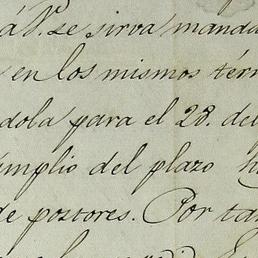 á V. se sirva manda
en los mismos térm
dola para el 28. del
amplio del plazo h
de postores. Por tan